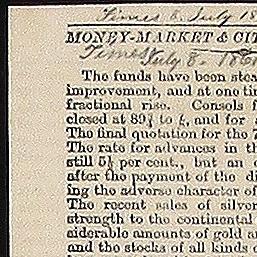 Times 8. July 18
MONEY-MARKET & CIT
Times July 8. 1861
The funds have been stea
improvement, and at one tim
fractional rise. Consols f
closed at 89¾ to ⅞, and for a
The final quotation for the 7
The rate for advances in th
still 5½ per cent., but an e
after the payment of the di
ing the adverse character of
The recent sales of silver
strength to the continental
siderable amounts of gold an
and the stocks of all kinds o